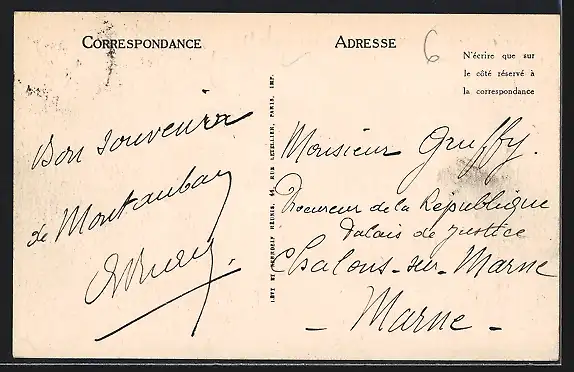 CORRESPONDANCE
ADRESSE
6
N'écrire que sur
le côté réservé à
la correspondance
Bon souvenir
de Montauban
LÉVY ET NEURDEIN RÉUNIS, 44, RUE LETELLIER, PARIS, IMP.
Monsieur Gruffy.
Procureur de la République
Palais de justice
Chalons-sur-Marne
- Marne -